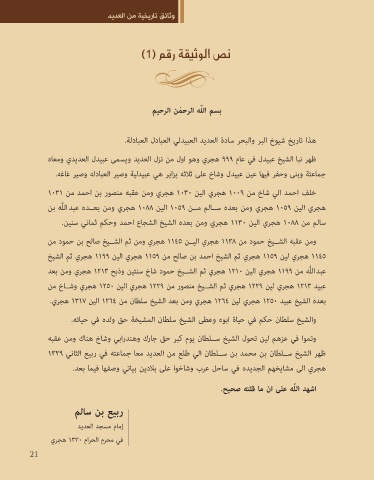 وثائق تاريخية من العديد
نص الوثيقة رقم (1)
بسم الله الرحمن الرحيم
هذا تاريخ شيوخ البر والبحر سادة العديد العبيدلي العبادل العبادلة.
ظهر نبا الشيخ عبيدل في عام ٩٩٩ هجري وهو اول من نزل العديد ويسمى عبيدل العديدي ومعاه
جماعتة وبنى وحفر فيها عين عبيدل وشاخ على ثلاثه يزاير هي عبيدلية وصير العبادله وصير غاغه.
خلف احمد الي شاخ من ١٠٠٩ هجري الين ١٠٣٠ هجري ومن عقبه منصور بن احمد من ١٠٣١
هجري الين ١٠٥٩ هجري ومن بعده سـالم مـن ١٠٥٩ الين ١٠٨٨ هجري ومن بعـده عبد الله بن
سالم من ١٠٨٨ هجري الين ١١٣٠ هجري ومن بعده الشيخ الشجاع احمد وحكم ثماني سنين.
ومن عقبه الشـيخ حمود من ١١٣٨ هجري اليـن ١١٤٥ هجري ومن ثم الشـيخ صالح بن حمود من
١١٤٥ هجري لين ١١٥٩ هجري ثم الشيخ احمد بن صالح من ١١٥٩ هجري الين ١١٩٩ هجري ثم الشيخ
عبدالله من ١١٩٩ هجري الين ١٢١٠ هجري ثم الشـيخ حمود شاخ سنتين وذبح ١٢١٣ هجري ومن بعد
عبيد ١٢١٣ هجري لين ١٢٢٩ هجري ثم الشـيخ منصور من ١٢٢٩ هجري الين ١٢٥٠ هجري وشـاخ من
بعده الشيخ عبيد ١٢٥٠ هجري لين ١٢٦٤ هجري ومن بعد الشيخ سلطان من ١٢٦٤ الين ١٣١٧ هجري.
والشيخ سلطان حكم في حياة ابوه وعطى الشيخ سلطان المشيخة حق ولده في حياته.
وتموا في عزهم لين تحول الشيخ سـلطان يوم كبر حق جارك وهندرابي وشاخ هناك ومن عقبه
ظهر الشيخ سـلطان بن محمد بن سـلطان الي طلع من العديد معا جماعته في ربيع الثاني ١٣٢٩
هجري الى مشايخهم الجديده في ساحل عرب وشاخوا على بلادين بياتي وصفها فيما بعد.
اشهد الله على ان ما قلته صحيح.
ربيع بن سالم
إمام مسجد العديد
في محرم الحرام ١٣٣٠ هجري
21